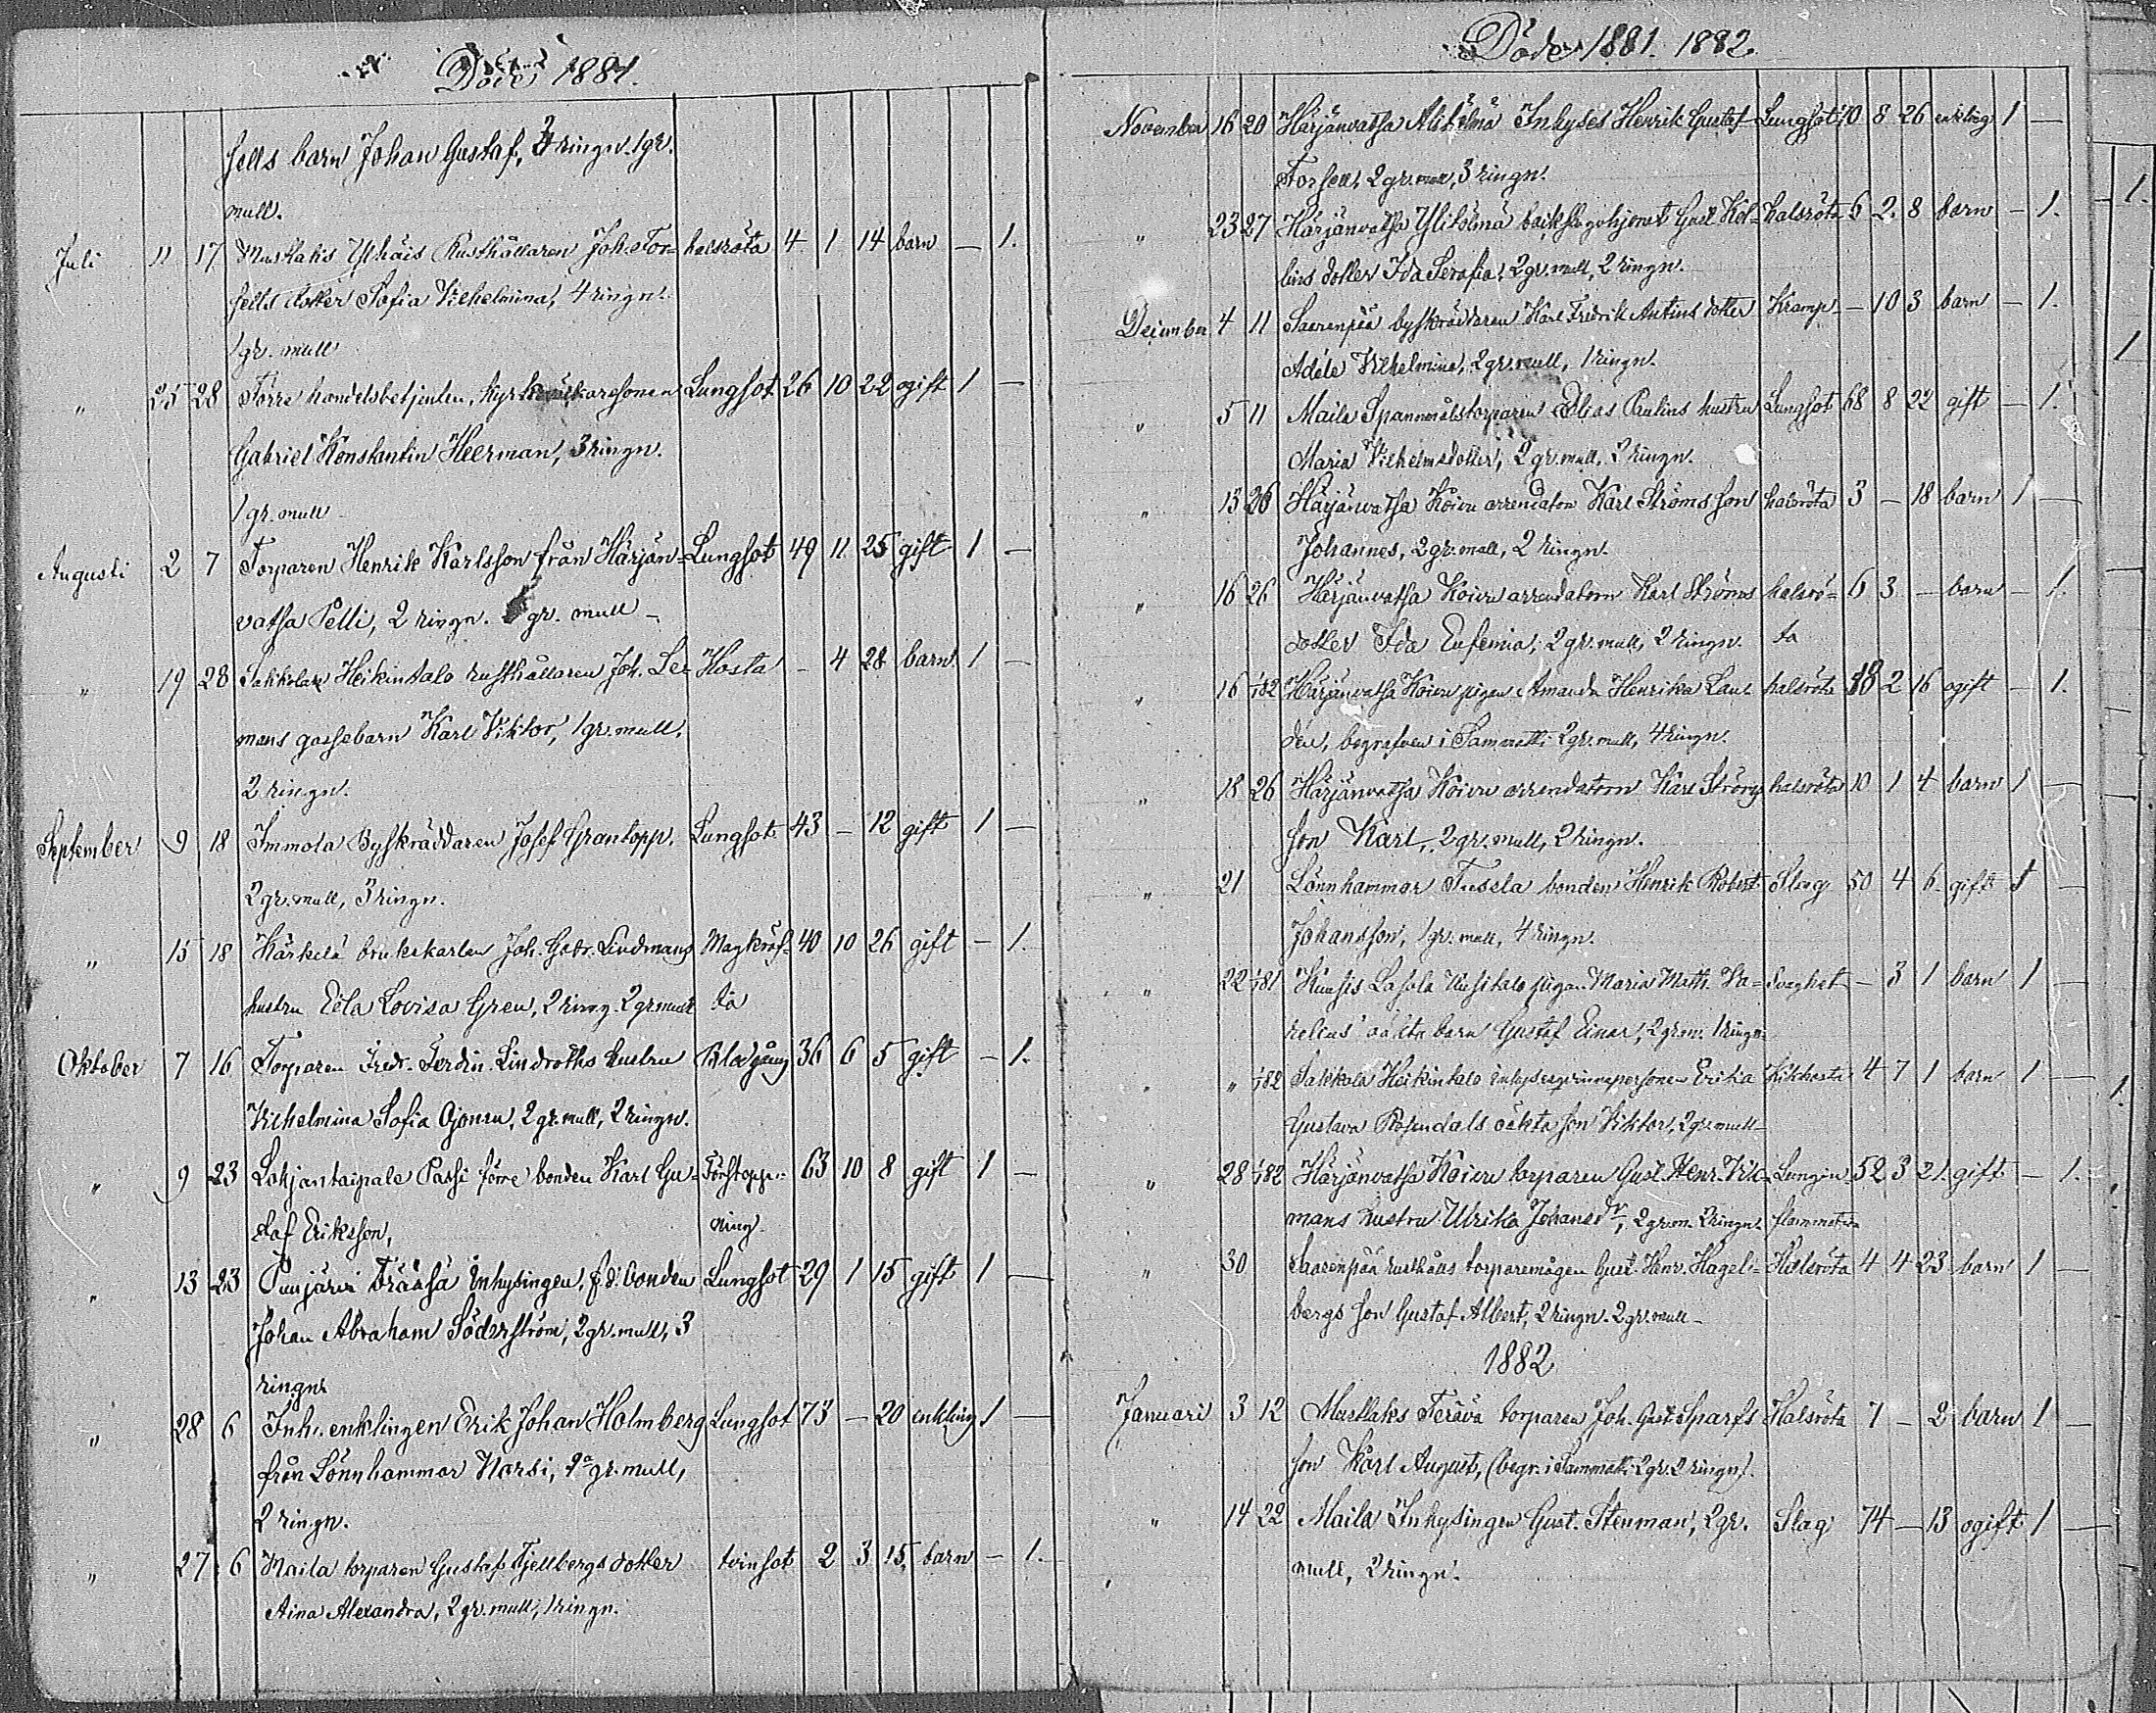 Döde 1881.
sells barn Johan Gustaf, 3 ringn. 1 gr.
mull.
Juli 11 17 Musttaks Ylhäis Rusthållaren Joh. For- halsröta 4 1 14 barn — 1.
sells dotter Sofia Vilhelmina, 4 ringn.
1 gr. mull
" 25 28 Förre handelsbetjenten, Gabriel Lungsot 26 10 22 ogift 1 —
Gabriel Konstantin Heerman, 3 ringn.
1 gr. mull
Augusti 2 7 Torparen Henrik Karlsson från Härjän- Lungsot 49 11 25 gift 1 —
vatsa Pelli, 2 ringn. gr. mull
" 19 28 Sakkola Heikintalo rusthållaren Joh. Le- Hosta — 4 28 barn 1 —
mans gossebarn Karl Viktor, 1 gr. mull,
2 ringn.
September 9 18 Immola Byskräddaren Josef Grantopp. Lungsot 43 — 12 gift 1 —
2 gr. mull, 3 ringn.
" 15 18 Kärkelä brukskarlen Joh. Gabr. Lindmans Magkräf- 40 10 26 gift — 1.
hustru Eela Lovisa Gren, 2 ring. 2 gr mull ta
Oktober 7 16 Torparen Fredr. Ferdin. Lindroths hustru Blodgång 36 6 5 gift — 1.
Vilhelmina Sofia Ojonen, 2 gr. mull, 2 ringn.
" 9 23 Lohjantaipale Passi förre bonden Karl Gu- Förstopp- 63 10 8 gift 1 —
staf Eriksson, ning.
" 13 23 Puujärvi Brässä Inhysingen, f.d. bonden Lungsot 29 1 15 gift 1 —
Johan Abraham Söderström, 2 gr. mull, 3
ringn.
" 28 6 Inh. enklingen Erik Johan Holmberg Lungsot 73 — 20 enkling 1 —
från Lönnhammar Norsi, 2 gr. mull,
2 ringn.
" 27 6 Maila torparen Gustaf Fjellbergs dotter tvinsot 2 3 15 barn — 1.
Aina Alexandra, 2 gr. mull, 1 ringn.
Döde 1881. 1882.
November 16 20 Härjänvatsa Alitölmä Inhyses Henrik Gustaf Lungsot 70 8 26 enkling 1 —
Forsell, 2 gr. mull, 3 ringn.
" 23 27 Härjänvatsa Ylitölmä Gust. Köl- halsröta 6 2 8 barn — 1.
lins dotter Ida Serafia, 2 gr. mull, 2 ringn.
December 4 11 Saarenpää byskräddaren Karl Fredrik Antins dotter Kramp — 10 3 barn — 1.
Adéle Vilhelmina, 2 gr. mull, 1 ringn.
" 5 11 Maila Spannmålstorparen Elias Paulins hustru Lungsot 68 8 22 gift — 1.
Maria Vilhelmsdotter, 2 gr. mull, 2 ringn.
" 15 26 Härjänvatsa Koivu arrendatorn Karl Ströms son halsröta 3 — 18 barn 1 —
Johannes, 2 gr. mull, 2 ringn.
" 16 26 Härjänvatsa Koivu arrendatorn Karl Ströms halsrö- 6 3 — barn — 1.
dotter Ida Eufemia, 2 gr. mull, 2 ringn. ta
" 16 1/82 Härjänvatsa Koivu pigan Amanda Henrika Lau- halsröta 18 2 16 ogift — 1.
den, begrafven i Sammatti 2 gr. mull, 4 ringn.
" 18 26 Härjänvatsa Koivu arrendatorn Karl Ströms halsröta 10 1 4 barn 1 —
son Karl, 2 gr. mull, 2 ringn.
" 21 Lönnhammar Tusela bonden Henrik Robert Slag 50 4 6 gift 1 —
Johansson, 1 gr. mull, 4 ringn.
" 22 1/81 Lassla Uusitalo pigan Maria Math. Svaghet — 3 1 barn 1 —
relius' oäkta barn Gustaf Einar, 2 gr m. 1 ringn.
" " 1/82 Sakkola Heikintalo Erika Kikhosta 4 7 1 barn 1 —
Gustava Rosendals oäkta son Viktor, 2 gr. mull
" 28 1/82 Härjänvatsa Koivu torparen Gust. Henr. Vik- Lungin- 52 3 21 gift — 1.
mans hustru Ulrika Johansdr, 2 gr m. 2 ringn. flammation
" 30 Saarenpää rusthålls torparemågen Gust. Henr. Hagel- Halsröta 4 4 23 barn 1 —
bergs son Gustaf Albert, 2 ringn. 2 gr. mull
1882
Januari 3 12 Musttaks Terävä torparen Joh. Gust. Sparfs Halsröta 7 — 2 barn 1 —
son Karl August, (begr. i Sammatti 2 gr. 2 ringn).
" 14 22 Maila Inhysingen Gust. Stenman, 2 gr. Slag 74 — 13 ogift 1 —
mull, 2 ringn.